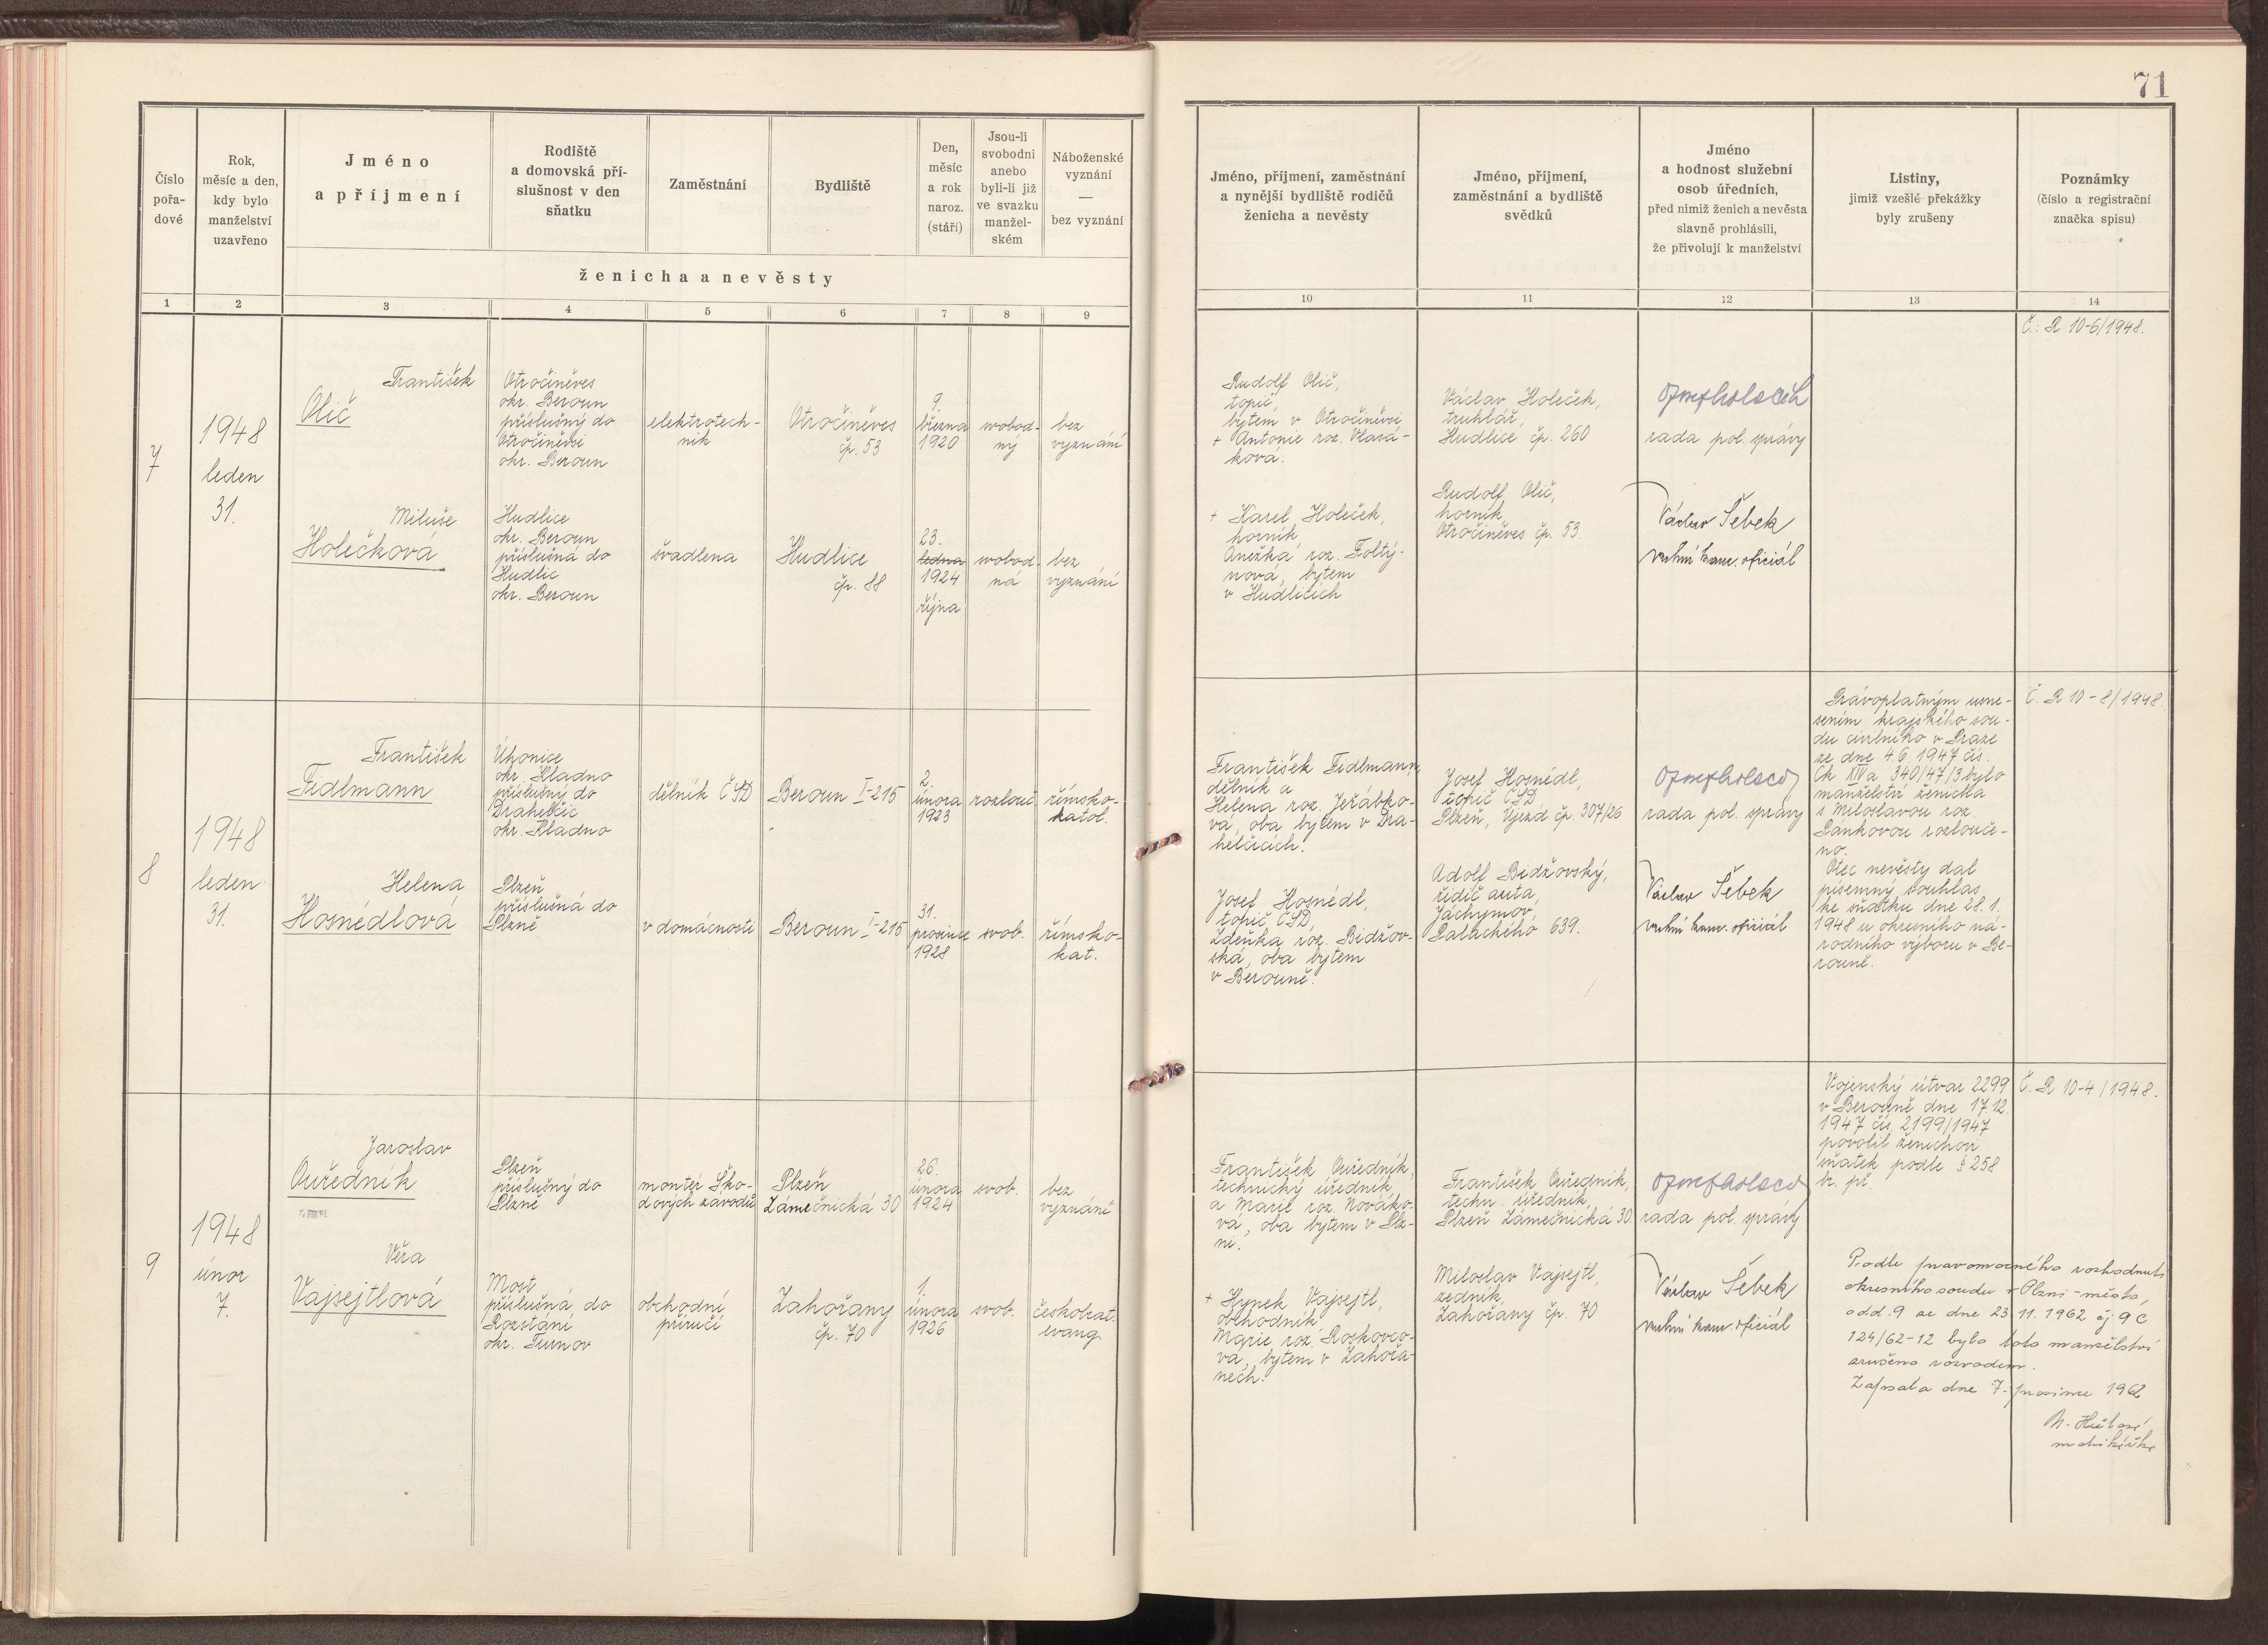 71
Číslo
pořa-
dové
Rok,
měsíc a den,
kdy bylo
manželství
uzavřeno
Jméno
a příjmení
Rodiště
a domovská pří-
slušnost v den
sňatku
Zaměstnání
Bydliště
Den,
měsíc
a rok
naroz.
(stáří)
Jsou-li
svobodni
anebo
byli-li již
ve svazku
manžel-
ském
Náboženské
vyznání
—
bez vyznání
ženicha a nevěsty
Jméno, příjmení, zaměstnání
a nynější bydliště rodičů
ženicha a nevěsty
Jméno, příjmení,
zaměstnání a bydliště
svědků
Jméno
a hodnost služební
osob úředních,
před nimiž ženich a nevěsta
slavně prohlásili,
že přivolují k manželství
Listiny,
jimiž vzešlé překážky
byly zrušeny
Poznámky
(číslo a registrační
značka spisu)
1 2 3 4 5 6 7 8 9 10 11 12 13 14
7
1948
leden
31.
František
Olič
Otročiněves
okr. Beroun
příslušný do
Otročiněvsi
okr. Beroun
elektrotech-
nik
Otročiněves
čp. 53
9.
března
1920
svobod-
ný
bez
vyznání
Rudolf Olič,
topič,
bytem v Otročiněvsi
+ Antonie roz. Vlasá-
ková.
Václav Holeček,
truhlář,
Hudlice čp. 260
rada pol. správy
Č.: R 10-6/1948.
Miluše
Holečková
Hudlice
okr. Beroun
příslušná do
Hudlic
okr. Beroun
švadlena
Hudlice
čp. 88
23.
ledna
1924
října
svobod-
ná
bez
vyznání
+ Karel Holeček,
horník,
Anežka roz. Foltý-
nová, bytem
v Hudlicích
Rudolf Olič,
horník,
Otročiněves čp. 53.
Václav Šebek
vrchní kanc. oficiál
8
1948
leden
31.
František
Fidlmann
Úhonice
okr. Kladno
příslušný do
Drahelčic
okr. Kladno
dělník ČSD
Beroun I-215
2.
února
1923
rozlouč.
římsko-
katol.
František Fidlmann,
dělník a
Helena roz. Jeřábko-
vá, oba bytem v Dra-
helčicích.
Josef Hosnédl,
topič ČSD,
Plzeň, Újezd čp. 307/26
rada pol. správy
Právoplatným usne-
sením krajského sou-
du civilního v Praze
ze dne 4.6.1947 čís.
Ck XIVa 340/47/3 bylo
manželství ženicha
s Miloslavou roz.
Pankovou rozlouče-
no.
Otec nevěsty dal
písemný souhlas
ke sňatku dne 28.1.
1948 u okresního ná-
rodního výboru v Be-
rouně.
Č. R 10-8/1948.
Helena
Hosnédlová
Plzeň
příslušná do
Plzně
v domácnosti
Beroun I-215
31.
prosince
1928
svob.
římsko-
kat.
Josef Hosnédl,
topič ČSD,
Zdeňka roz. Bidžov-
ská, oba bytem
v Berouně.
Adolf Bidžovský,
řidič auta,
Jáchymov,
Palackého 639.
Václav Šebek
vrchní kanc. oficiál
9
1948
únor
7.
Jaroslav
Ouředník
Plzeň
příslušný do
Plzně
montér Ško-
dových závodů
Plzeň
Zámečnická 30
26.
února
1924
svob.
bez
vyznání
František Ouředník,
technický úředník
a Marie roz. Nováko-
vá, oba bytem v Plz-
ni.
František Ouředník,
techn. úředník,
Plzeň Zámečnická 30.
rada pol. správy
Vojenský útvar 2299
v Berouně dne 17.12.
1947 čís. 2199/1947
povolil ženichovi
sňatek podle § 258
br. př.
Č. R 10-4/1948.
Věra
Vajsejtlová
Most
příslušná do
Rozstání
okr. Turnov
obchodní
příručí
Zahořany
čp. 70
1.
února
1926
svob.
českobrat.
evang.
+ Hynek Vajsejtl,
obchodník
Marie roz. Roskovco-
vá, bytem v Zahořa-
nech.
Miloslav Vajsejtl,
zedník,
Zahořany čp. 70
Václav Šebek
vrchní kanc. oficiál
Podle pravomocného rozhodnutí
okresního soudu v Plzni-město,
odd. 9 ze dne 23.11.1962 čj. 9 C
124/62-12 bylo toto manželství
zrušeno rozvodem.
Zapsala dne 7. prosince 1962
matrikářka